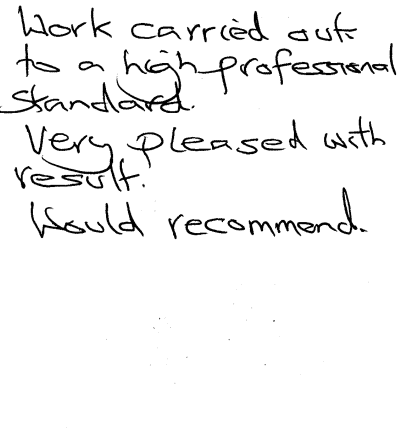 Work carried out
to a high professional
standard.
Very pleased with
result.
Would recommend.